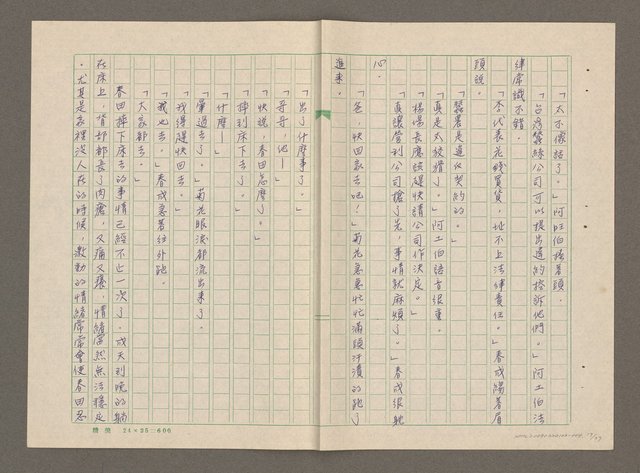 「太不像話了。」阿旺伯搖著頭。
「台灣蠶絲公司可以提出違約控訴他們。」阿土伯法
律常識不錯。
「李代表花錢買貨，扯不上法律責任。」春成縐著眉
頭說。
「蠶農是違反契約的。」
「真是太狡猾了。」阿土伯語音很重。
「楊場長應該趕快請公司作決定。」
「真讓營利公司搶了先，事情就麻煩了。」春成很躭
心。
「爸，快回家去吧！」菊花急急忙忙滿頭汗漬的跑了
進來。
「出了什麼事了。」
「哥哥，他—」
「快說，春田怎麼了。」
「摔到床下去了。」
「什麼—」
「暈過去了。」菊花眼淚都流出來了。
「我得趕快回去。」
「我也去。」春成急著往外跑。
「大家都去。」
春田摔下床去的事情已經不止一次了，成天到晚的躺
在床上，背部都長了肉瘡，又痛又癢，情緒當然無法穩定
。尤其是家裡沒人在的時候，激動的情緒常常會使春田忍
精美 24×25=600